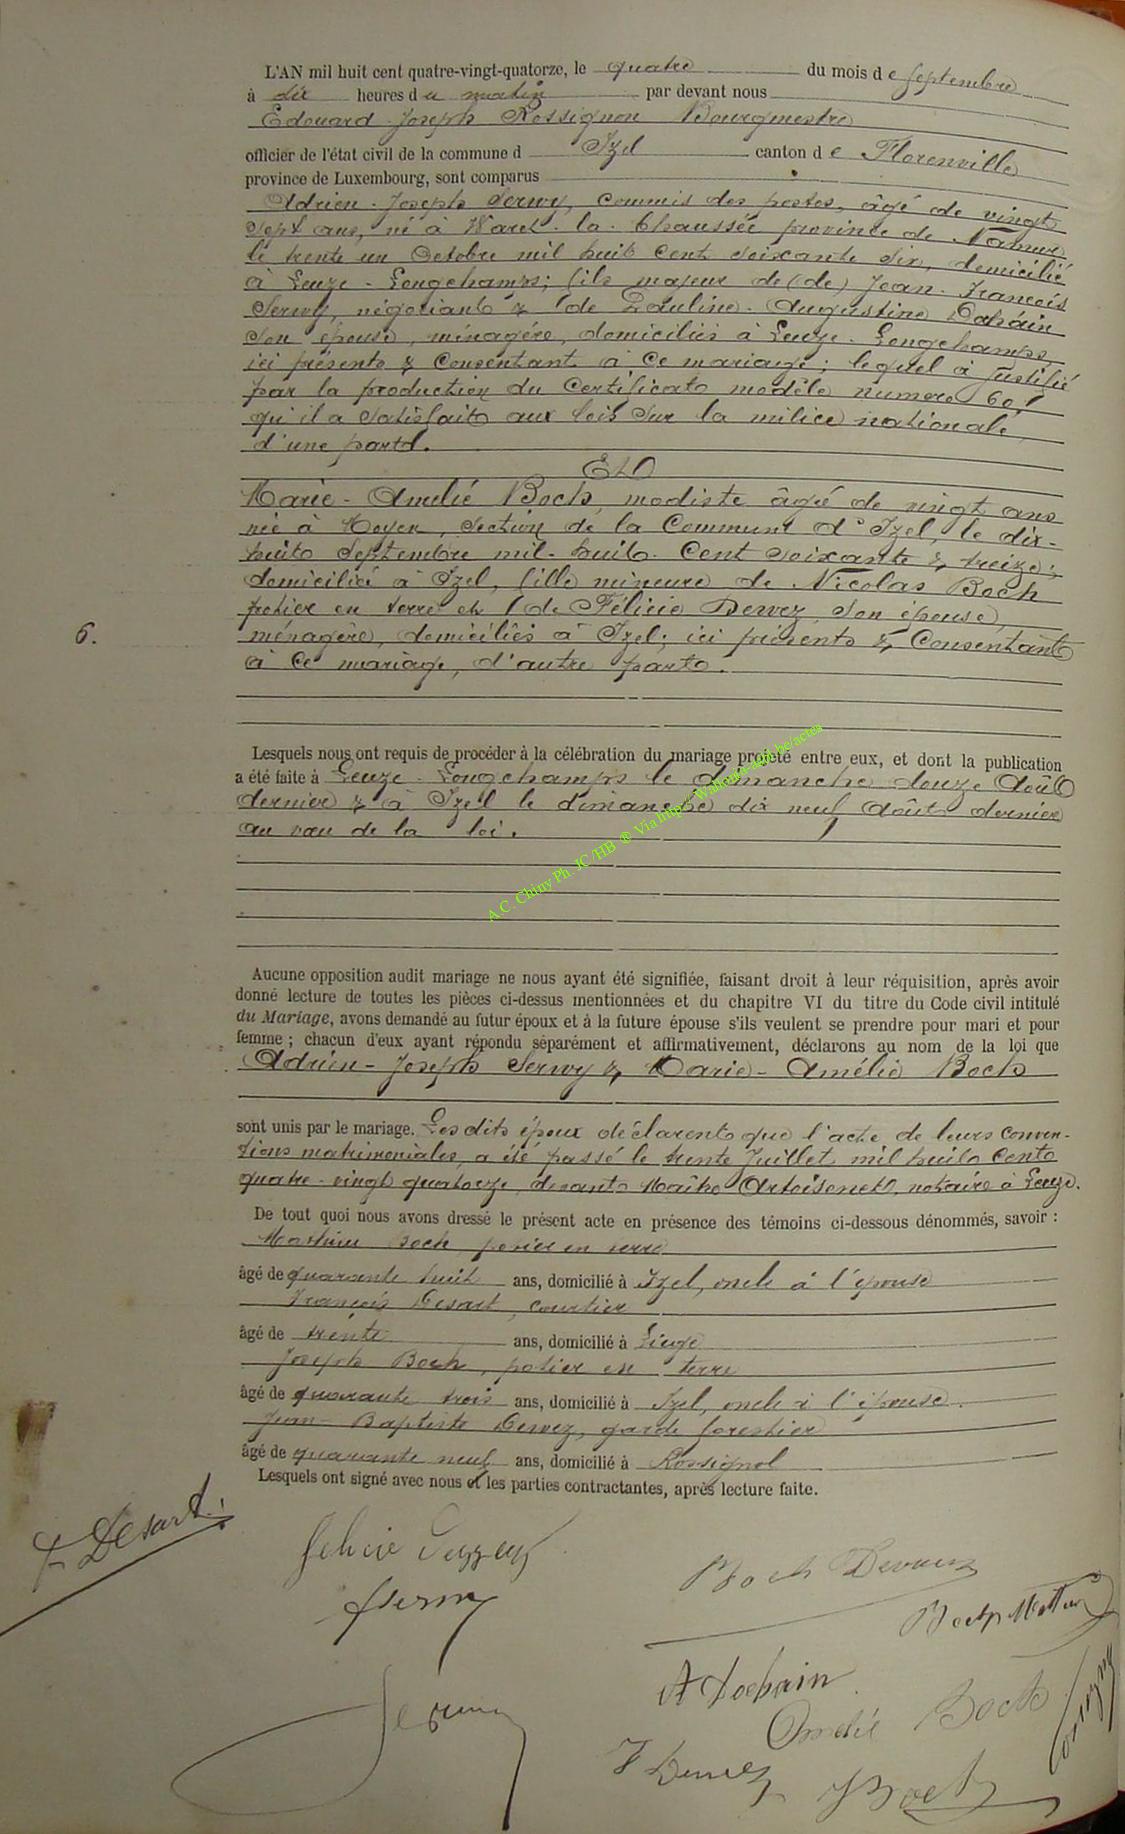 L'AN mil huit cent quatre-vingt-quatorze, le quatre du mois de Septembre
à dix heures du matin par devant nous
Edouard Joseph Rossignon Bourgmestre
officier de l'état civil de la commune d Izel canton de Florenville
province de Luxembourg, sont comparus
Adrien-Joseph Servoy, commis des postes, âgé de vingt
sept ans, né à Waret-la-Chaussée province de Namur
le trente un Octobre mil huit cent soixante six, domicilié
à Leuze-Longchamps; fils majeur de (de) Jean-François
Servoy, négociant & de Pauline-Augustine Dochain
son épouse, ménagère, domiciliés à Leuze-Longchamps,
ici présents & Consentant à ce mariage; lequel a justifié
par la production du Certificat modèle numero 60
qu'il a satisfait aux lois sur la milice nationale,
d'une part.
ET
Marie-Amelié Boch, modiste âgée de vingt ans
née à Moyen, Section de la Commune d'Izel, le dix-
huit Septembre mil-huit-Cent soixante & treize;
domiciliée à Izel, fille mineure de Nicolas Boch
potier en terre et de Félicie Dewez son épouse,
ménagère, domiciliés à Izel; ici présents & Consentant
6.
à ce mariage, d'autre part.
Lesquels nous ont requis de procéder à la célébration du mariage projeté entre eux, et dont la publication
a été faite à Leuze-Longchamps le dimanche douze Août
dernier & à Izel le dimanche dix neuf Août dernier
au vœu de la loi.
A.C. Chiny Ph. JC/HB ® Via http://Wallonia-asbl.be/actes
Aucune opposition audit mariage ne nous ayant été signifiée, faisant droit à leur réquisition, après avoir
donné lecture de toutes les pièces ci-dessus mentionnées et du chapitre VI du titre du Code civil intitulé
du Mariage, avons demandé au futur époux et à la future épouse s'ils veulent se prendre pour mari et pour
femme ; chacun d'eux ayant répondu séparément et affirmativement, déclarons au nom de la loi que
Adrien-Joseph Servoy & Marie-Amélie Boch
sont unis par le mariage. Lesdits époux déclarent que l'acte de leurs conven-
tions matrimoniales, a été passé le trente Juillet mil huit Cent
quatre-vingt quatorze, devant Maître Artoisenet, notaire à Leuze.
De tout quoi nous avons dressé le présent acte en présence des témoins ci-dessous dénommés, savoir :
Mathieu Boch potier en terre
âgé de quarante huit ans, domicilié à Izel, oncle à l'épouse
François Desart, courtier
âgé de trente ans, domicilié à Leuze
Joseph Boch, potier en terre
âgé de quarante trois ans, domicilié à Izel, oncle à l'épouse.
Jean-Baptiste Dewez, garde forestier
âgé de quarante neuf ans, domicilié à Rossignol
Lesquels ont signé avec nous et les parties contractantes, après lecture faite.
F Desart
Félicie
Boch
Boch Mathieu
A Dochain
Amélie Boch
J Boch